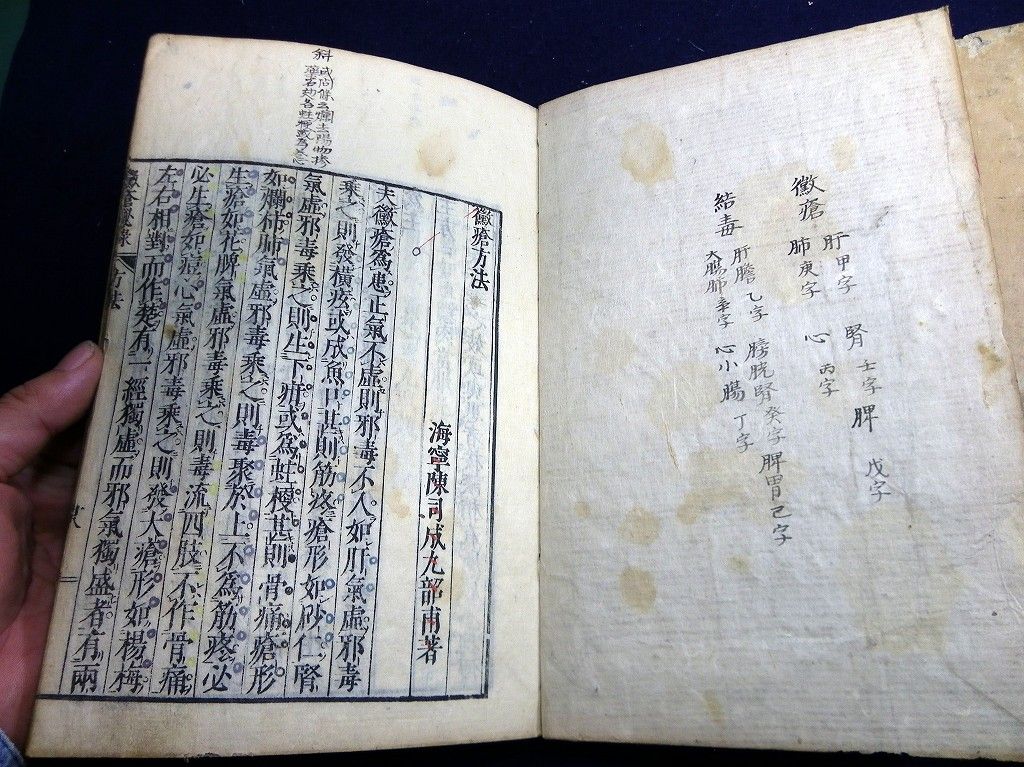 黴瘡 肝甲字 腎壬字 脾戊字
肺庚字 心丙字
結毒 肝膽乙字 膀胱腎癸字 脾胃己字
大腸肺辛字 心小腸丁字
黴瘡方法
海寧陳司成九韶甫著
夫黴瘡爲患正氣不虛則邪毒不入如肝氣虛邪毒
乘之則發橫痃或成魚口甚則筋疼瘡形如砂仁腎
氣虛邪毒乘之則生下疳或爲蛀梗甚則骨痛瘡形
如爛柿肺氣虛邪毒乘之則毒聚於上不爲筋疼必
生瘡如花脾氣虛邪毒乘之則毒流四肢不作骨痛
必生瘡如痘心氣虛邪毒乘之則發大瘡形如楊梅
左右相對而作更有一經獨虛而邪氣獨盛者有兩
黴瘡秘錄 方法